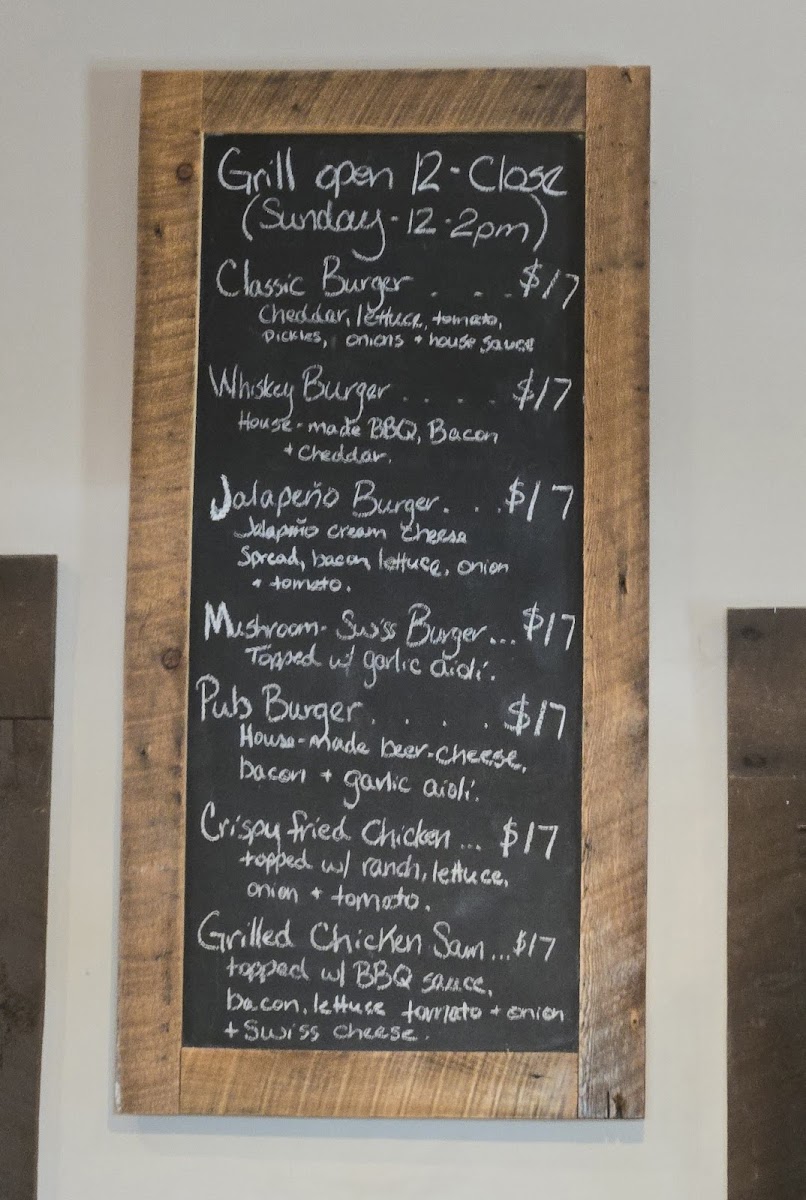 Grill open 12 - Close
(Sunday - 12 - 2pm)
Classic Burger . . . $17
Cheddar, lettuce, tomato,
Pickles, onions + house sauce
Whiskey Burger . . . . $17
House-made BBQ, Bacon
+ Cheddar.
Jalapeño Burger. . . $17
Jalapeño cream cheese
Spread, bacon, lettuce, onion
+ tomato.
Mushroom-Swiss Burger... $17
Topped w/ garlic aioli.
Pub Burger . . . . $17
House-made beer-cheese,
bacon + garlic aioli.
Crispy fried Chicken ... $17
topped w/ ranch, lettuce,
onion + tomato.
Grilled Chicken Sam ... $17
topped w/ BBQ sauce,
bacon, lettuce tomato + onion
+ Swiss cheese.